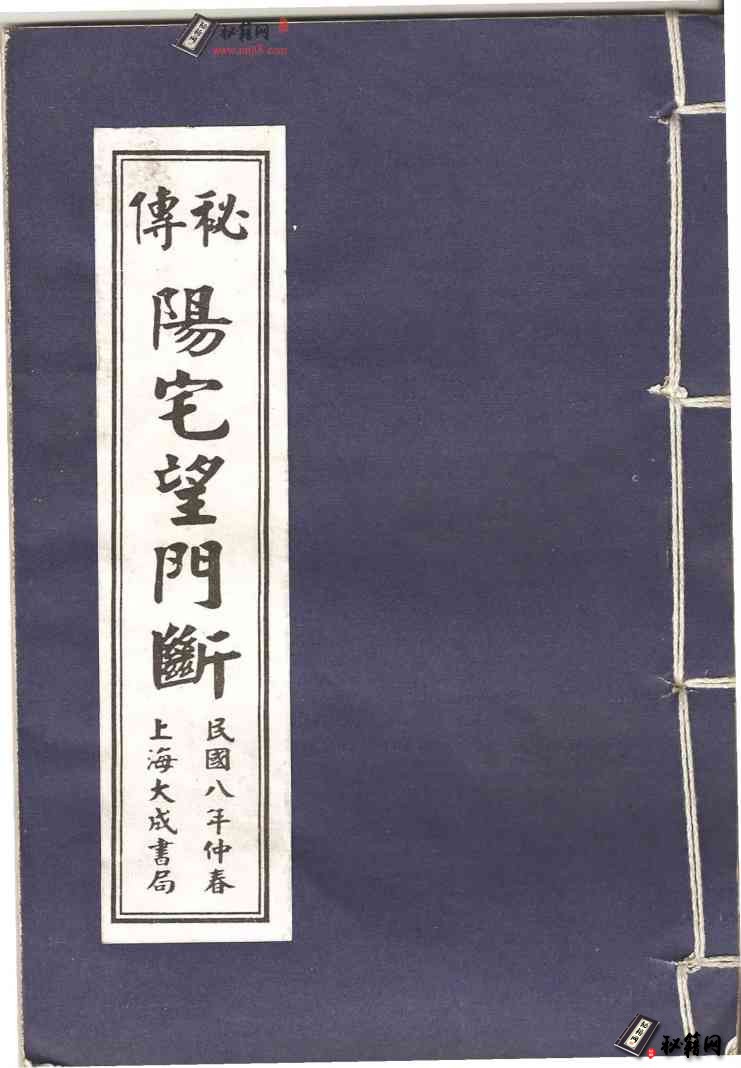 秘籍网
www.mij8.com
秘傳
陽宅望門斷
民國八年仲春
上海大成書局
秘籍网